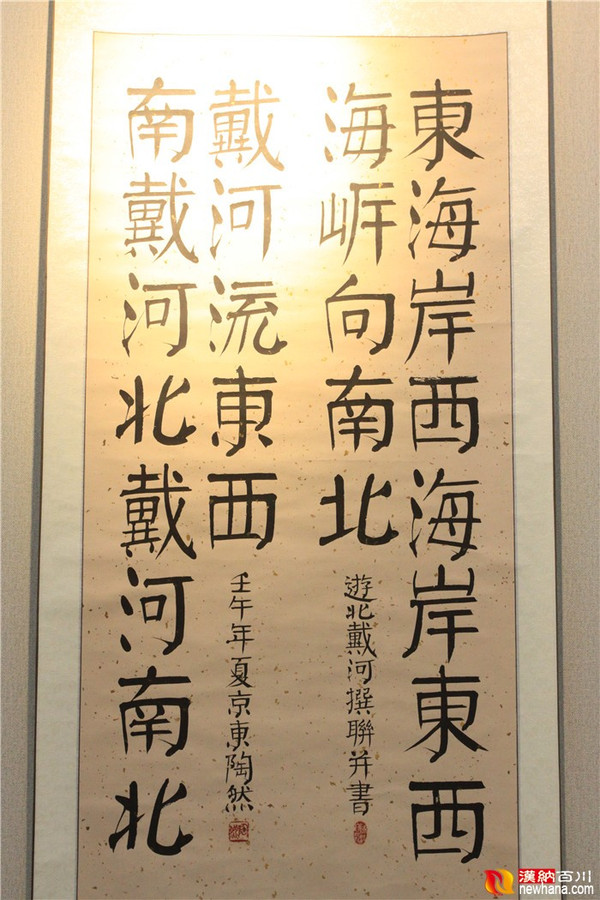 東海岸西海岸東西
海岸向南北
遊北戴河撰聯并書
南戴河北戴河南北
戴河流東西
壬午年夏京東陶然
漢納百川
newhana.com